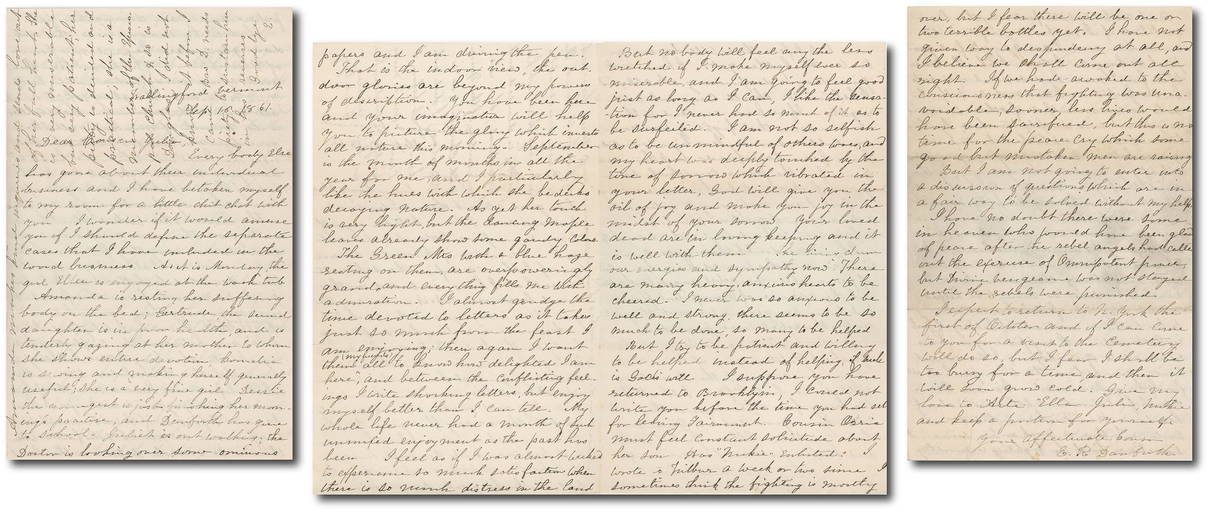 Wallingford Vermont
Sep 1861
Dear Cousin Julia
Every body else
has gone about their individual
business and I have betaken myself
to my room for a little chit chat with
you I wonder if it would amuse
you if I should define the seperate
cases that I have included in the
word business As it is Monday, the
girl is engaged at the wash tub
Amanda is resting her suffering
body on the bed; Gertrude the second
daughter is in poor health, and is
tenderly gazing at her mother to whom
she shows entire devotion, Cornelia
is sewing and making herself generally
useful; she is a very fine girl
the youngest is just finishing her morn-
ing practice, and Danforth has gone
to School; is out walking; the
Doctor is looking over some ominous
papers and I am driving the pen.
That is the indoor view, the out
door glories are beyond my powers
of description. You have been here
and your imagination will help
you to picture the glory which invests
all nature this morning. September
is the month of months in all the
year for me, and I particularly
like the hues with which she bedecks
decaying nature. As yet her touch
is very slight, but the Maple
leaves already show some gaudy colors
The Green Mts with a blue haze
resting on them, are overpoweringly
grand, and every thing fills me with
admiration. I almost grudge the
time devoted to letters as it takes
just so much from the feast I
am enjoying; then again I want
them all to know how delighted I am
here; and between the conflicting feel-
ings I write shocking letters, but enjoy
myself better than I can tell. My
whole life never had a month of such
unmixed enjoyment as the past has
been I feel as if I was almost wicked
to experience so much satisfaction when
there is so much distress in the land
But nobody will feel any the less
wretched if I make myself ever so
miserable, and I am going to feel good
just as long as I can, I like the sensa-
tion for I never had so much of it as to
be surfeited. I am not so selfish
as to be unmindful of others woes, and
my heart was deeply touched by the
tone of sorrow which vibrated in
your letter, God will give you the
oil of joy and make you joy in the
midst of your sorrow Your loved
dead are in loving keeping and it
is well with them The living claim
our energies and sympathy now There
are many heavy, anxious hearts to be
cheered. I never was so anxious to be
well and strong, there seems to be so
much to be done, so many to be helped
But I try to be patient and willing
to be helped instead of helping, if such
is God's will I suppose you have
returned to Brooklyn, I could not
write you before the time you had set
for leaving Fairmount. Cousin
must feel constant solicitude about
her son Has enlisted? I
wrote to Wilbur a week or two since I
sometimes think the fighting is mostly
over, but I fear there will be one or
two terrible battles yet. I have not
given way to despondency at all, and
I believe we shall come out all
right If we had awoked to the
consciousness that fighting was una-
voidable, sooner, less lives would
have been sacrificed, but this is no
time for the peace cry which some
good but mistaken men are raising
But I am not going to enter into
a discussion of questions which are in
a fair way to be solved without my help
I have no doubt there were some
in heaven who would have been glad
of peace after the rebel angels had called
out the exercise of Omnipotent power,
but Divine vengeance was not stayed
until the rebels were punished.
I expect to return to N. York the
first of October and if I can come
to you for a visit to the Cemetery
will do so, but I fear I shall be
too busy for a time and then it
will soon grow cold. Give my
love to Arta Ella Julia,
and keep a portion for yourself
Your affectionate Cousin
E. R. Danforth